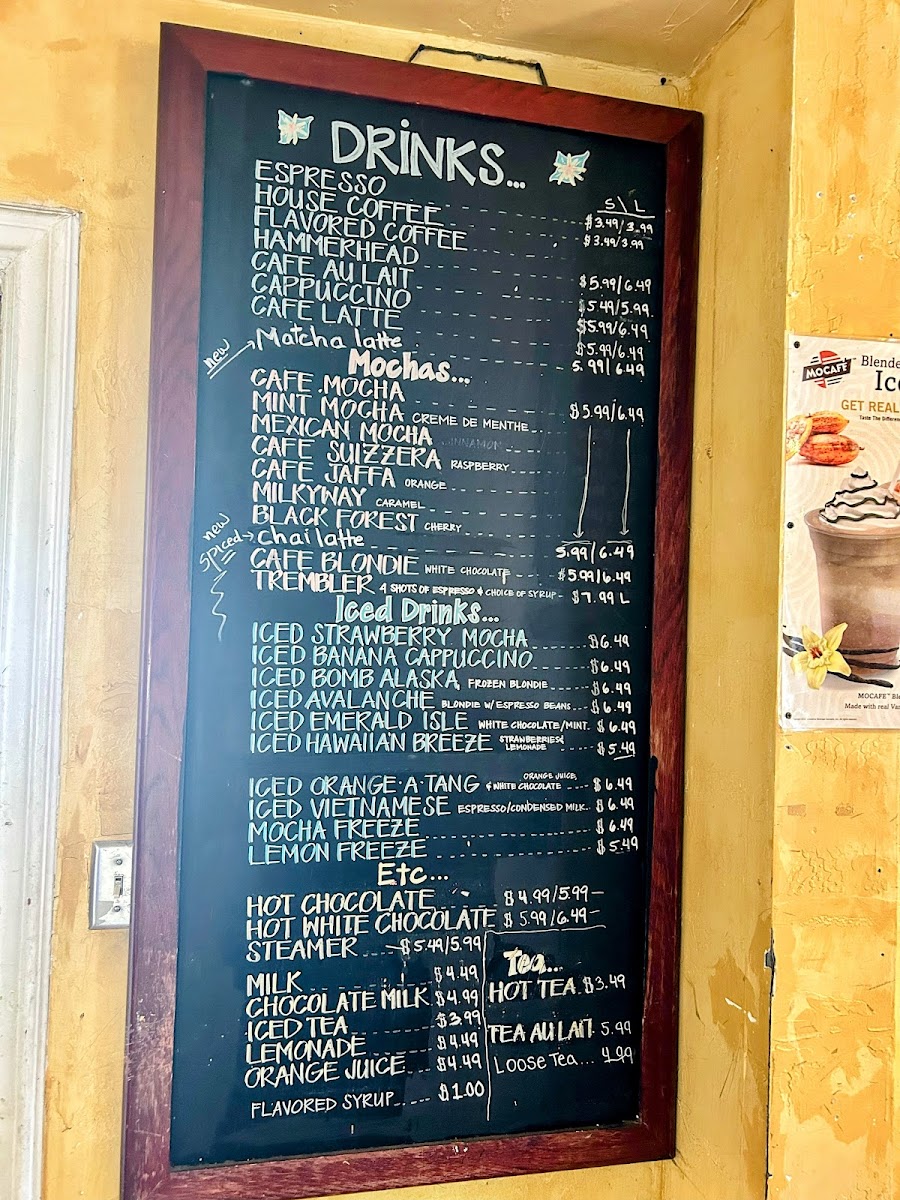 DRINKS...
S\L
ESPRESSO
HOUSE COFFEE $3.49/3.99
FLAVORED COFFEE $3.49/3.99
HAMMERHEAD $5.99/6.49
CAFE AU LAIT $5.49/5.99
CAPPUCCINO $5.99/6.49
CAFE LATTE $5.99/6.49
new Matcha latte 5.99/6.49
Mochas...
CAFE MOCHA $5.99/6.49
MINT MOCHA CREME DE MENTHE
MEXICAN MOCHA CINNAMON
CAFE SUIZZERA RASPBERRY
CAFE JAFFA ORANGE
MILKYWAY CARAMEL
BLACK FOREST CHERRY
new Spiced chai latte 5.99/6.49
CAFE BLONDIE WHITE CHOCOLATE $5.99/6.49
TREMBLER 4 SHOTS OF ESPRESSO & CHOICE OF SYRUP - $7.99 L
Iced Drinks...
ICED STRAWBERRY MOCHA $6.49
ICED BANANA CAPPUCCINO $6.49
ICED BOMB ALASKA FROZEN BLONDIE $6.49
ICED AVALANCHE BLONDIE W/ ESPRESSO BEANS $6.49
ICED EMERALD ISLE WHITE CHOCOLATE/MINT. $6.49
ICED HAWAIIAN BREEZE STRAWBERRIES & LEMONADE $5.49
ICED ORANGE·A·TANG ORANGE JUICE, & WHITE CHOCOLATE $6.49
ICED VIETNAMESE ESPRESSO/CONDENSED MILK $6.49
MOCHA FREEZE $6.49
LEMON FREEZE $5.49
Etc...
HOT CHOCOLATE $4.99/5.99
HOT WHITE CHOCOLATE $5.99/6.49
STEAMER $5.49/5.99
MILK $4.49
CHOCOLATE MILK $4.99
ICED TEA $3.99
LEMONADE $4.49
ORANGE JUICE $4.49
FLAVORED SYRUP $1.00
Tea...
HOT TEA $3.49
TEA AU LAIT 5.99
Loose Tea... 4.99
MOCAFE
Blende
Ice
GET REAL
Taste The Differen
MOCAFE™ Ble
Made with real Van